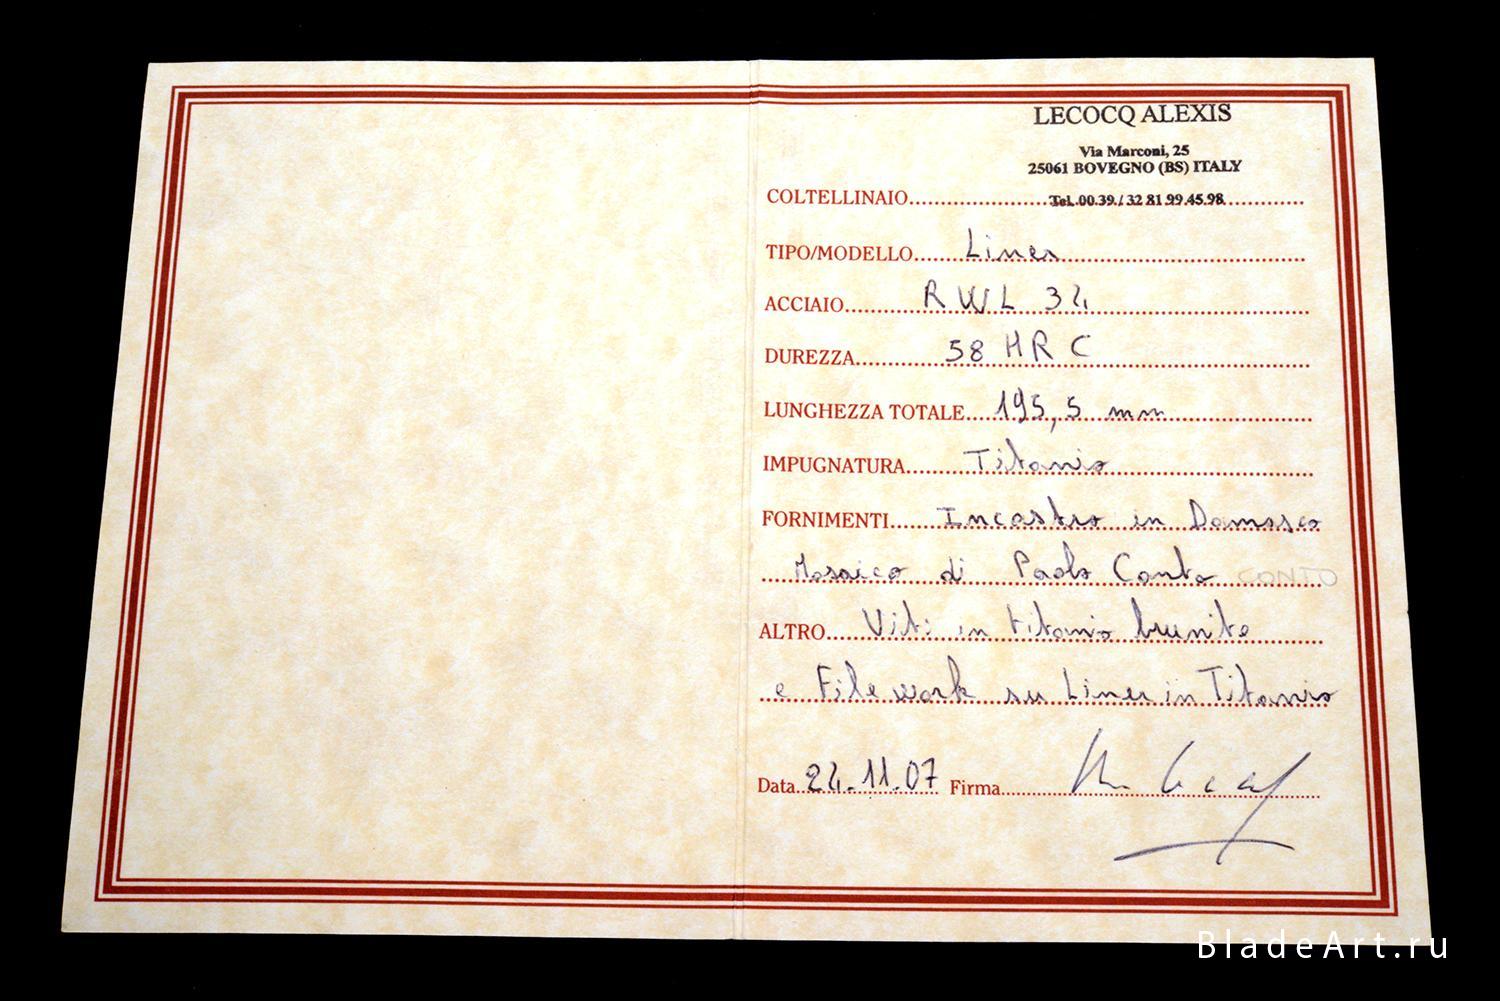 LECOCQ ALEXIS
Via Marconi, 25
25061 BOVEGNO (BS) ITALY
Tel. 00.39 / 32 81 99.45.98
COLTELLINAIO
TIPO/MODELLO Liner
ACCIAIO RWL 34
DUREZZA 58 HRC
LUNGHEZZA TOTALE 195,5 mm
IMPUGNATURA Titanio
FORNIMENTI Incastro in Damasco
Mosaico di Paolo Conto CONTO
ALTRO Viti in titanio brunite
e File work su Liner in Titanio
Data 24.11.07 Firma
BladeArt.ru